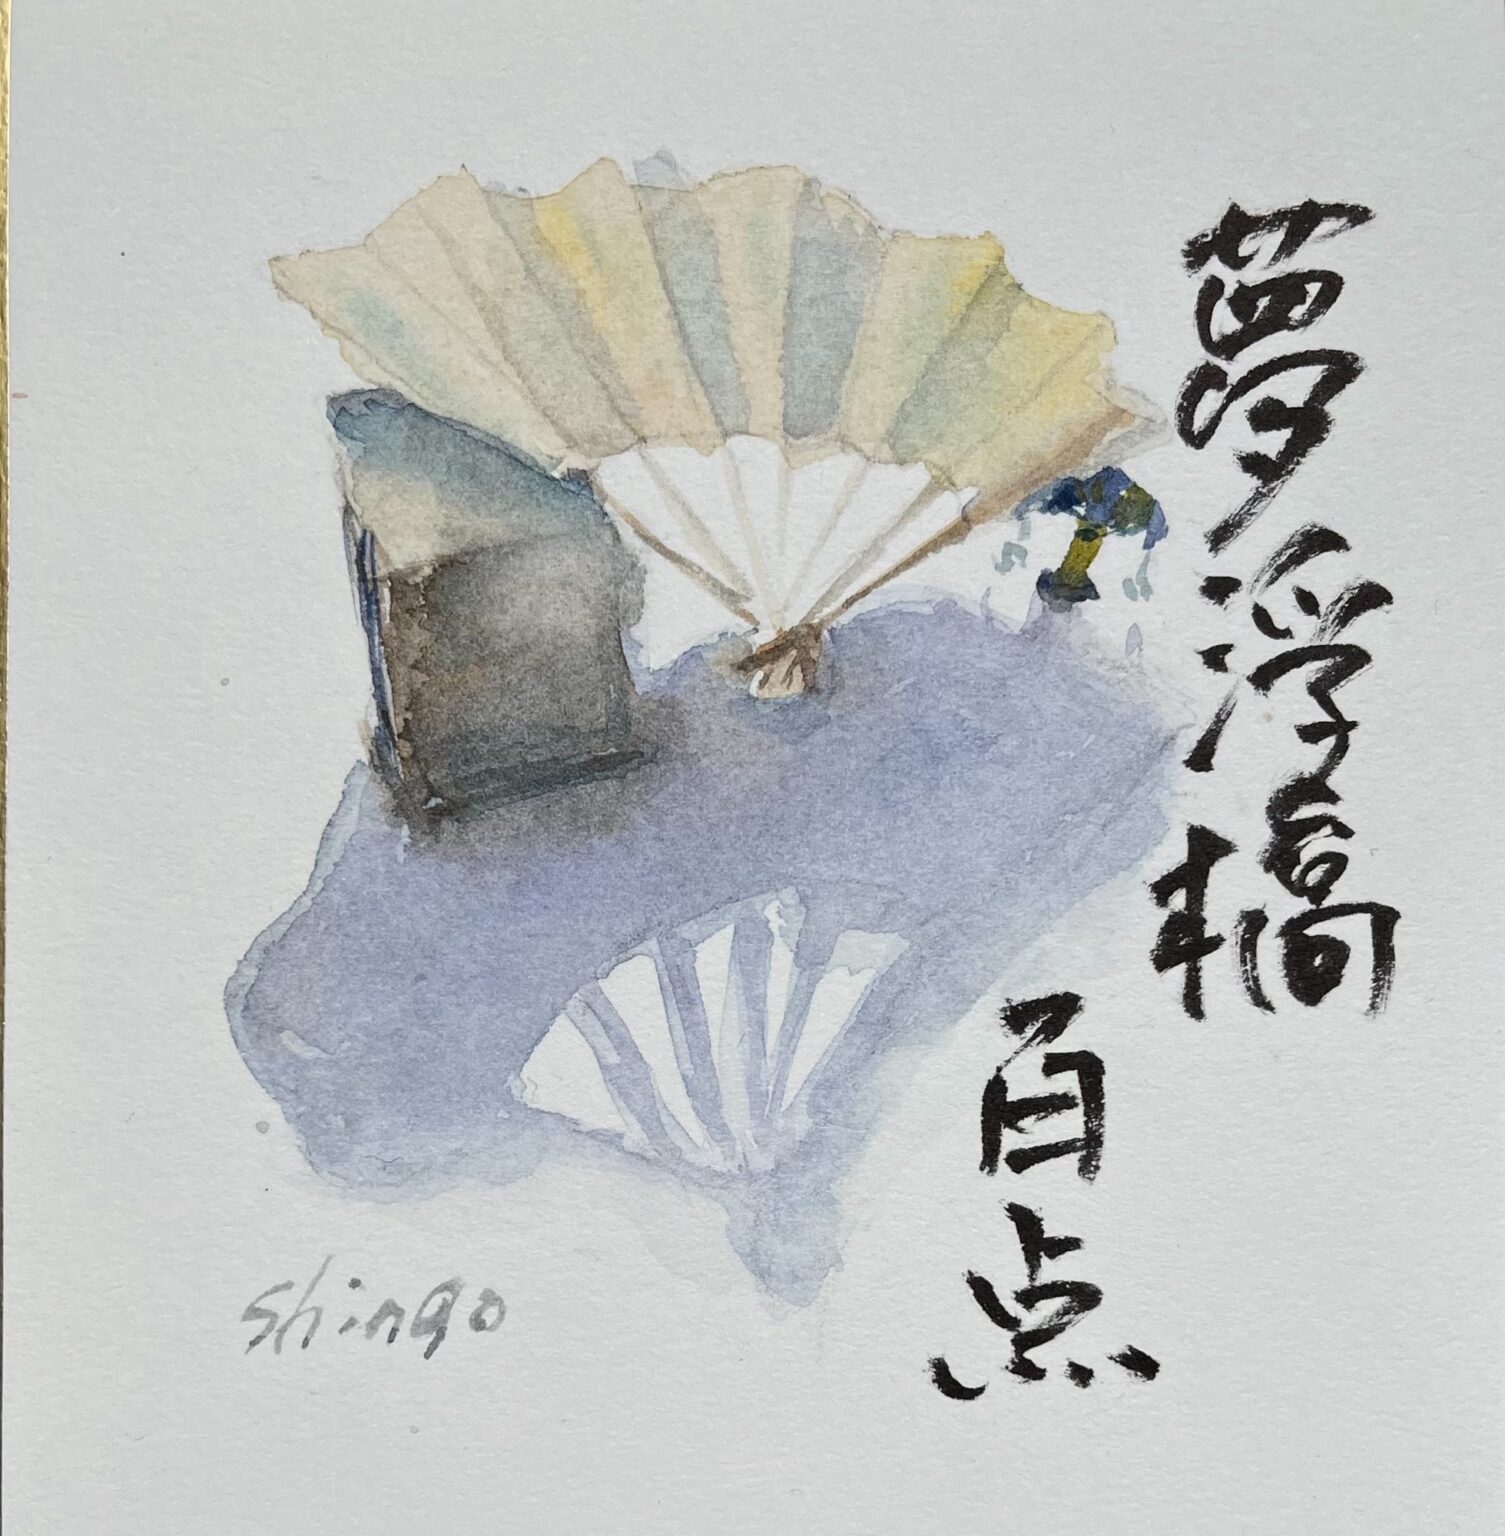 夢浮橋
百点
Shingo